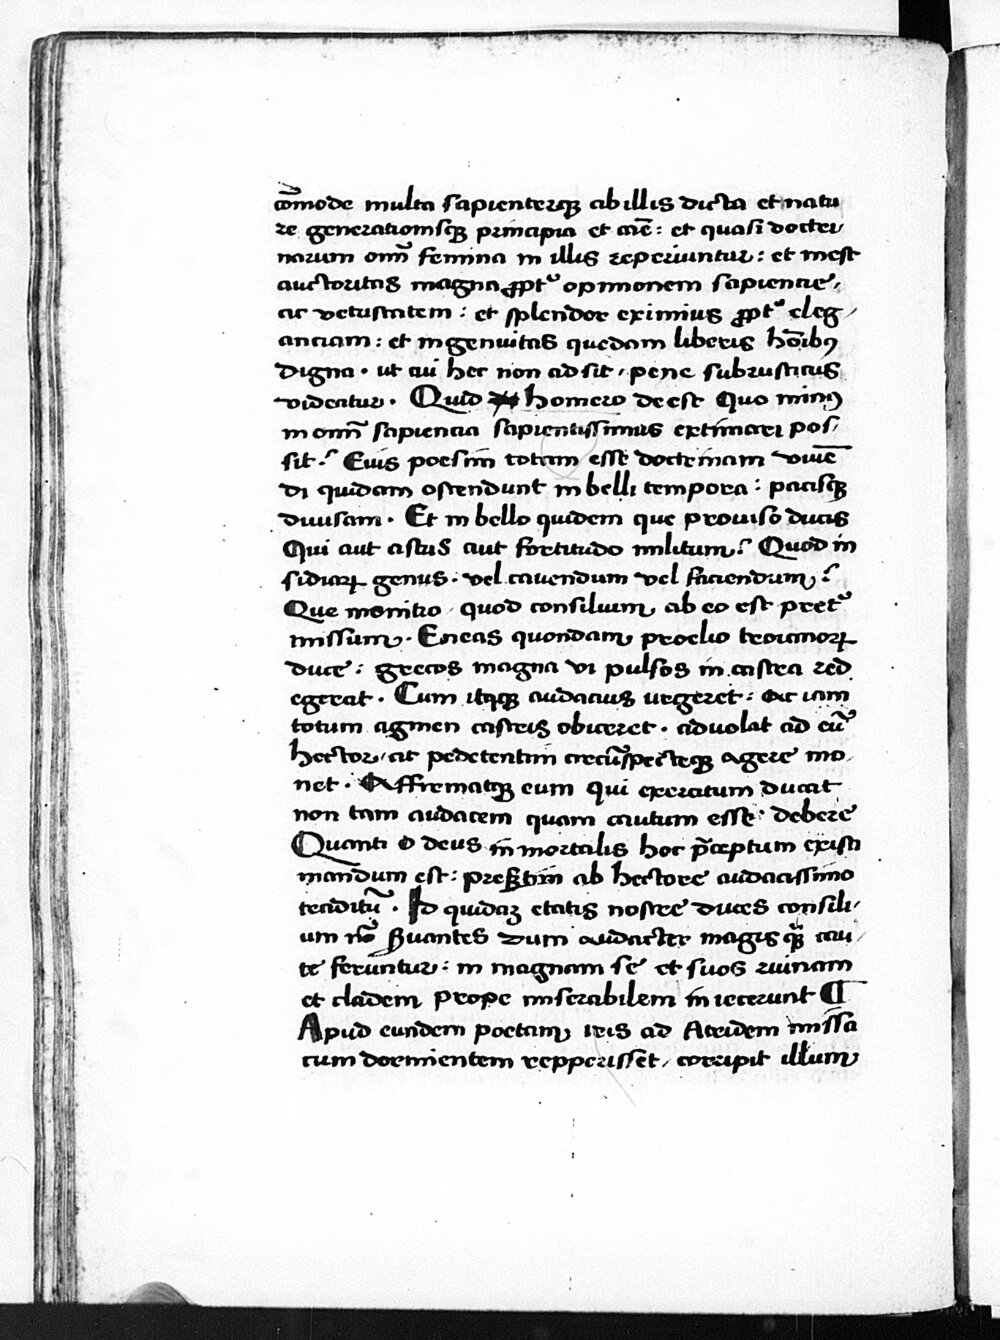 cōmode multa sapienterqꝫ ab illis dicta et natu
re generationisqꝫ principia et cāe : et quasi doctri
narum omī femina in illis reperiuntur : et inest
auctoritas magna ꝓpt᷑ opinionem sapiencie,
ac vetustatem : et splendor eximius ꝓpt᷑ eleg
anciam : et ingenuitas quedam liberis hōibꝯ
digna · ut cui hec non adsit, pene subrusticus
videatur · Quid homero deest Quo minꝯ
in omī sapiencia sapientissimus extimari pos,
sit ? Eius poesim totam esse doctrinam viuē
di quidam ostendunt in belli tempora : pacisqꝫ
diuisam · Et in bello quidem que prouiso ducis
Qui aut astus aut fortitudo militum ? Quod in
sidiaꝝ genus · vel cauendum vel faciendum ?
Que monitio, quod consilium ab eo est pret᷑
missum · Eneas quondam proelio troianoꝝ
duce : grecos magna vi pulsos in castra red
egerat · Cum itaqꝫ audacius urgeret : Ac iam
totum agmen castris obiceret · aduolat ad eū
hector, ac pedetentim circūspecteqꝫ agere mo,
net · Affirmatqꝫ eum qui exercitum ducat
non tam audacem quam cautum esse debere
Quanti o deus inmortalis hoc p̄ceptum existi
mandum est : presertim ab hectore audacissimo
traditū · Id quidaꝫ etatis nostre duces consili,
um nō seruantes dum audacter magis quā cau,
te feruntur : in magnam se et suos ruinam
et cladem prope miserabilem iniecerunt ¶
Apud eundem poetam iris ad Atridem missa
cum dormientem repperisset, corripit illum